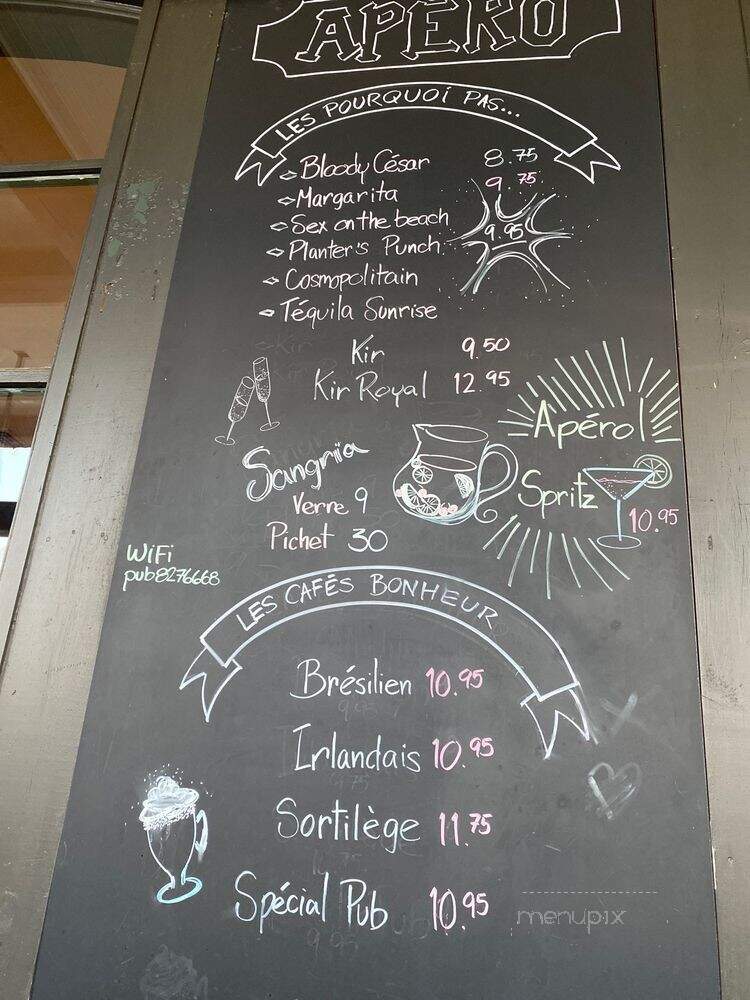 APÉRO
LES POURQUOI PAS...
Bloody César 8.75
Margarita 9.75
Sex on the beach
9.95
Planter's Punch
Cosmopolitain
Téquila Sunrise
Kir 9.50
Kir Royal 12.95
Apérol
Spritz
10.95
Sangria
Verre 9
Pichet 30
WiFi
pub8276668
LES CAFÉS BONHEUR
Brésilien 10.95
Irlandais 10.95
Sortilège 11.75
Spécial Pub 10.95
menupix